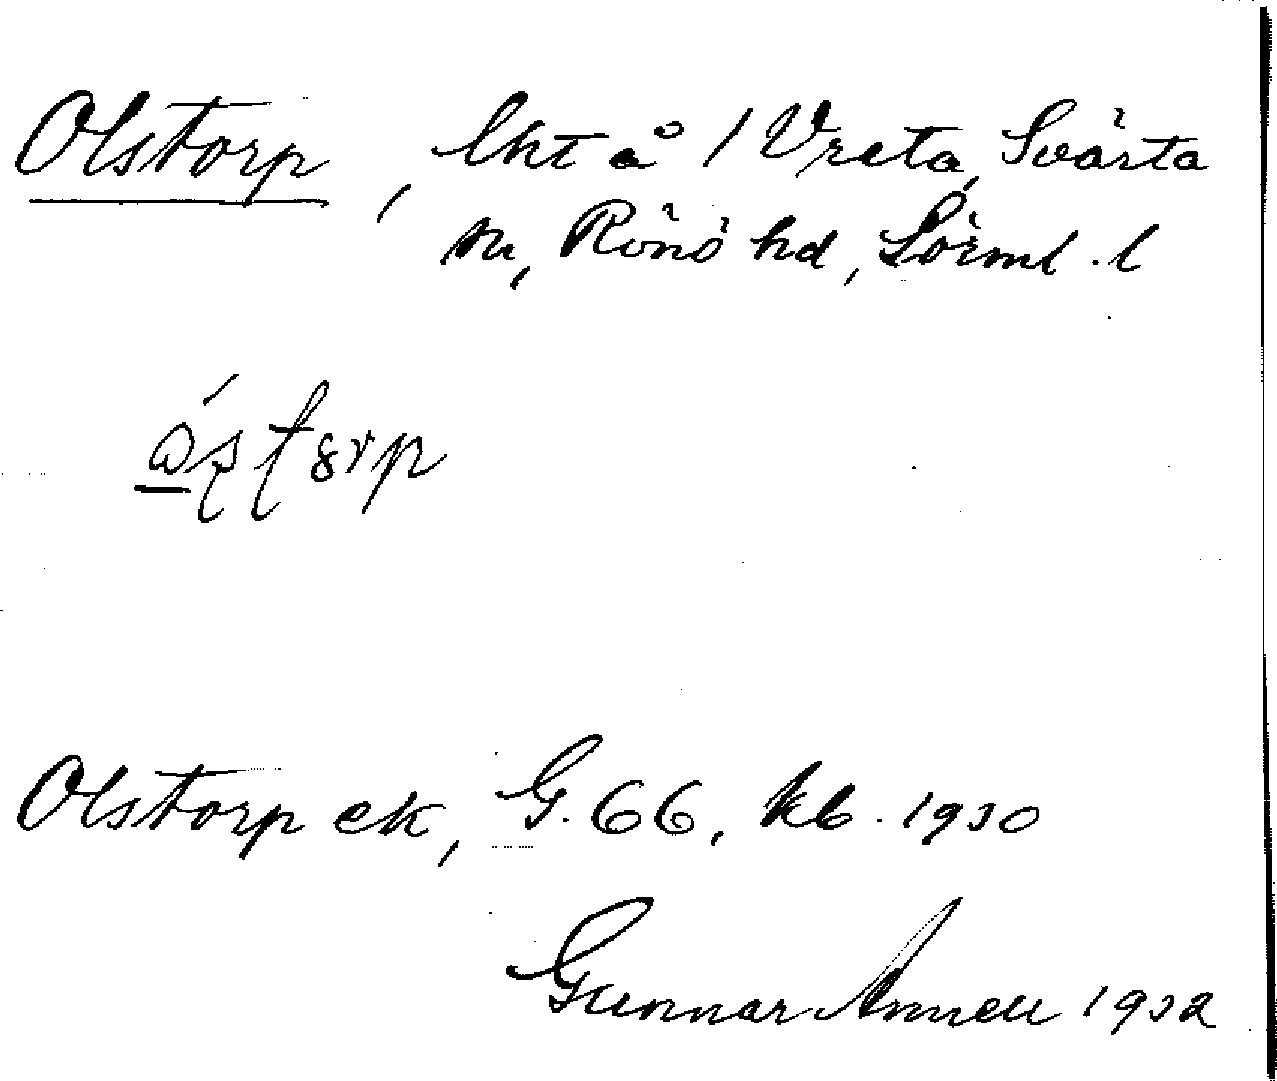 Olstorp, lht å 1 Vreta, Svärta
sn, Rönö hd, Sörml. l
Olstorp ek, G. 66, kb. 1930
Gunnar Annell 1932